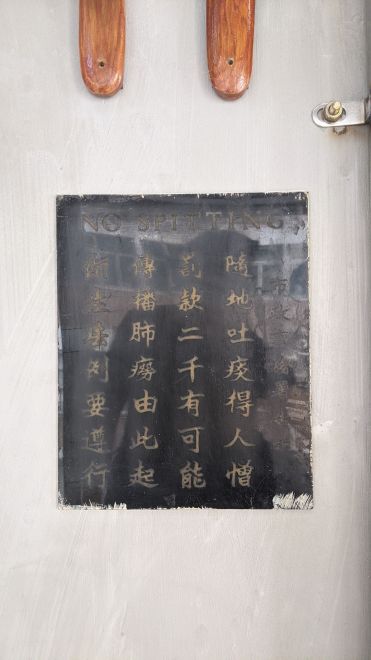 NO SPITTING
市政事務署
隨地吐痰得人憎
罰款二千有可能
傳播肺癆由此起
衞生條例要遵行